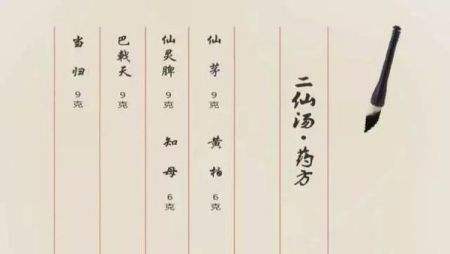 二仙汤·药方
仙茅 9克 黄柏 6克
仙灵脾 9克 知母 6克
巴戟天 9克
当归 9克